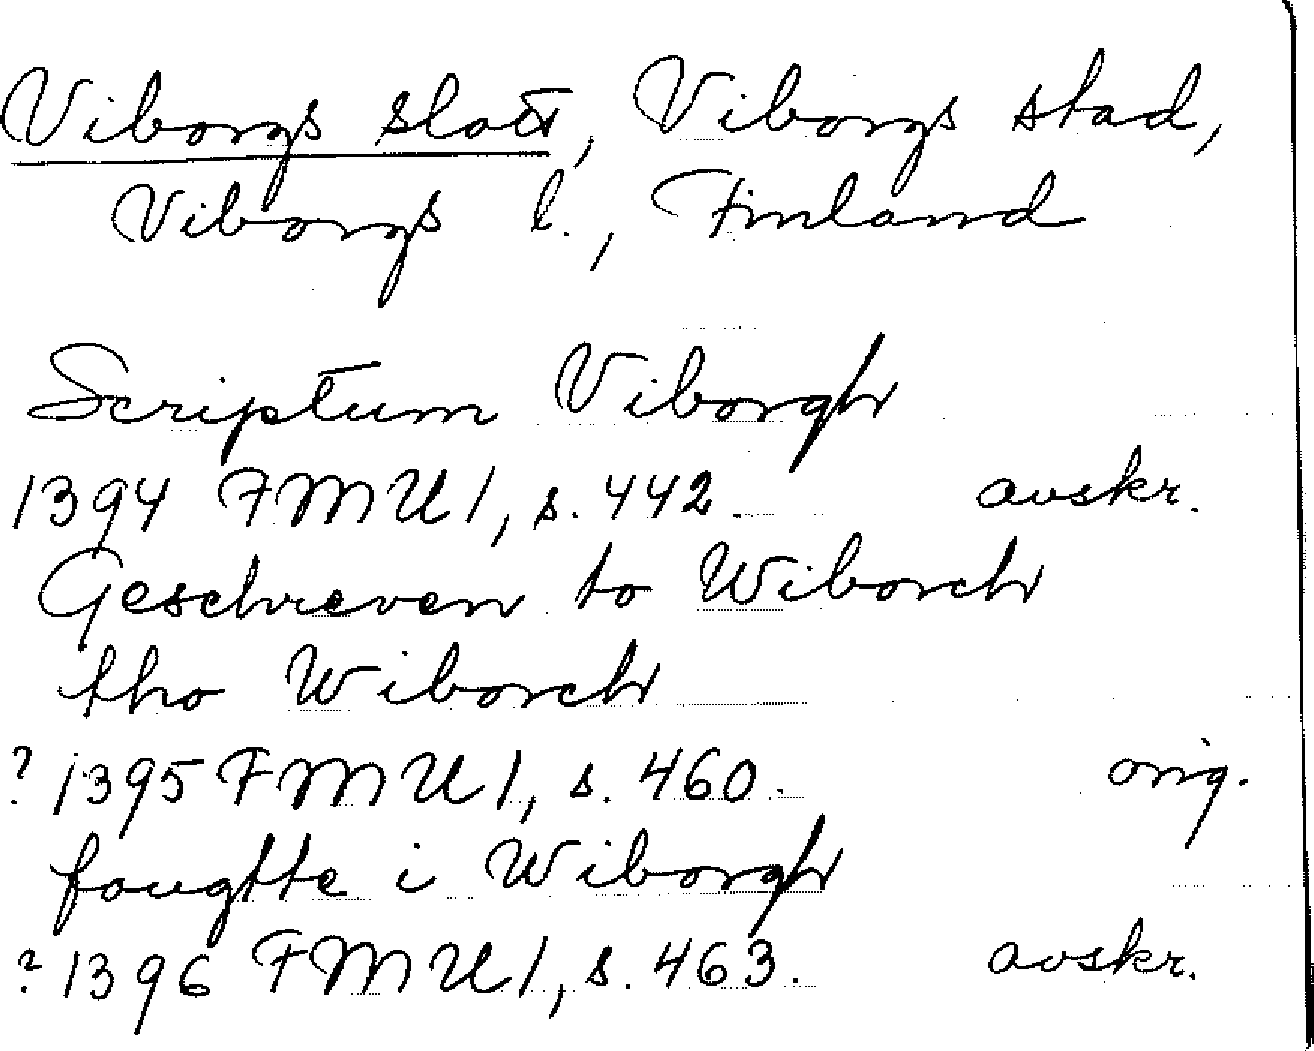 Viborgs slott, Viborgs stad,
Viborgs l., Finland
Scriptum Viborgh
1394 FMU 1, s. 442. avskr.
Geschreven to Wiborch
tho Wiborch
? 1395 FMU 1, s. 460. orig.
fougtte i Wiborgh
? 1396 FMU 1, s. 463. avskr.